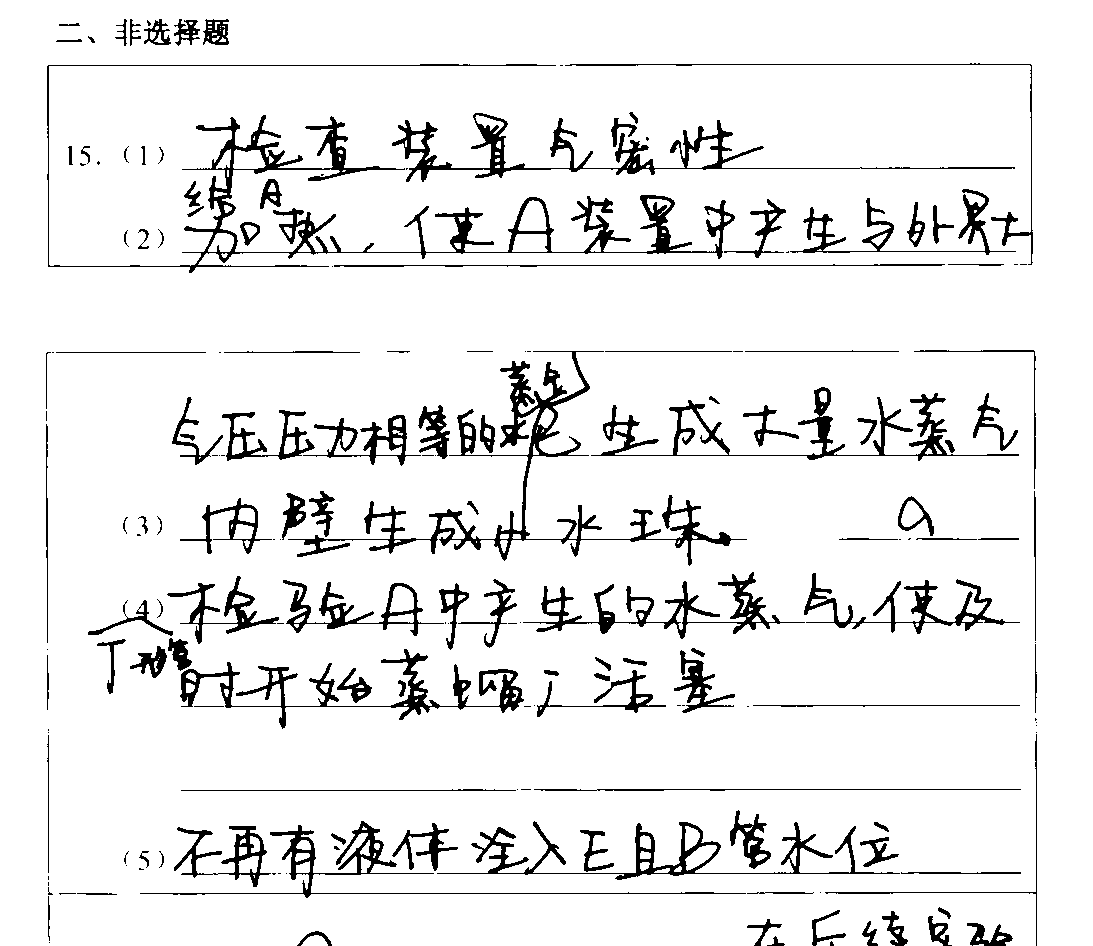 二、非选择题
15.（1）检查装置气密性
给A
（2）加热，使A装置中产生与外界大
蒸气
气压压力相等的 生成大量水蒸气
（3）内壁生成小水珠。 a
（4）检验A中产生的水蒸气，使及
T形管
时开始蒸馏 活塞
（5）不再有液体注入E且B管水位
在后续实验